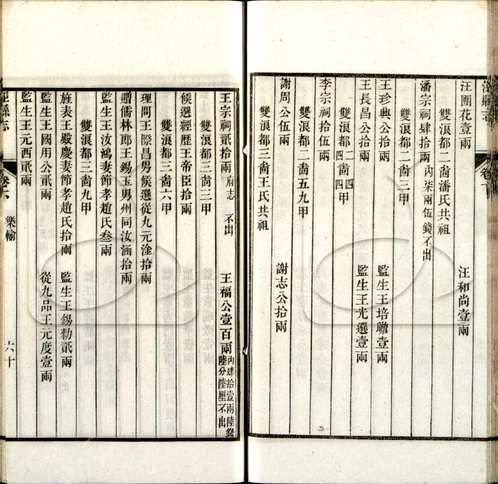 汪開花壹兩
汪和尚壹兩
雙浪都二啚潘氏共祖
潘宗祠肆拾兩 內柒兩伍錢不出
雙浪都二啚三甲
王珍典公拾兩
監生王培聰壹兩
王長昌公拾兩
監生王光選壹兩
雙浪都二啚四甲
李宗祠拾伍兩
雙浪都二啚五九甲
謝周公伍兩
謝志公拾兩
雙浪都三啚王氏共祖
王宗祠貳拾兩 府志不出
王福公壹百兩 內肆拾壹兩陸錢陸分陸厘不出
雙浪都三啚三甲
候選經歷王帝臣拾兩
雙浪都三啚六甲
理問王際昌男候選從九元淦拾兩
贈儒林郎王錫玉男州同汝涵拾兩
監生王汝鴻妻節孝趙氏叁兩
雙浪都三啚九甲
旌表王嚴慶妻節孝趙氏拾兩
監生王錫勑貳兩
監生王國用公貳兩
從九品王元度壹兩
監生王元西貳兩
樂輸
六十